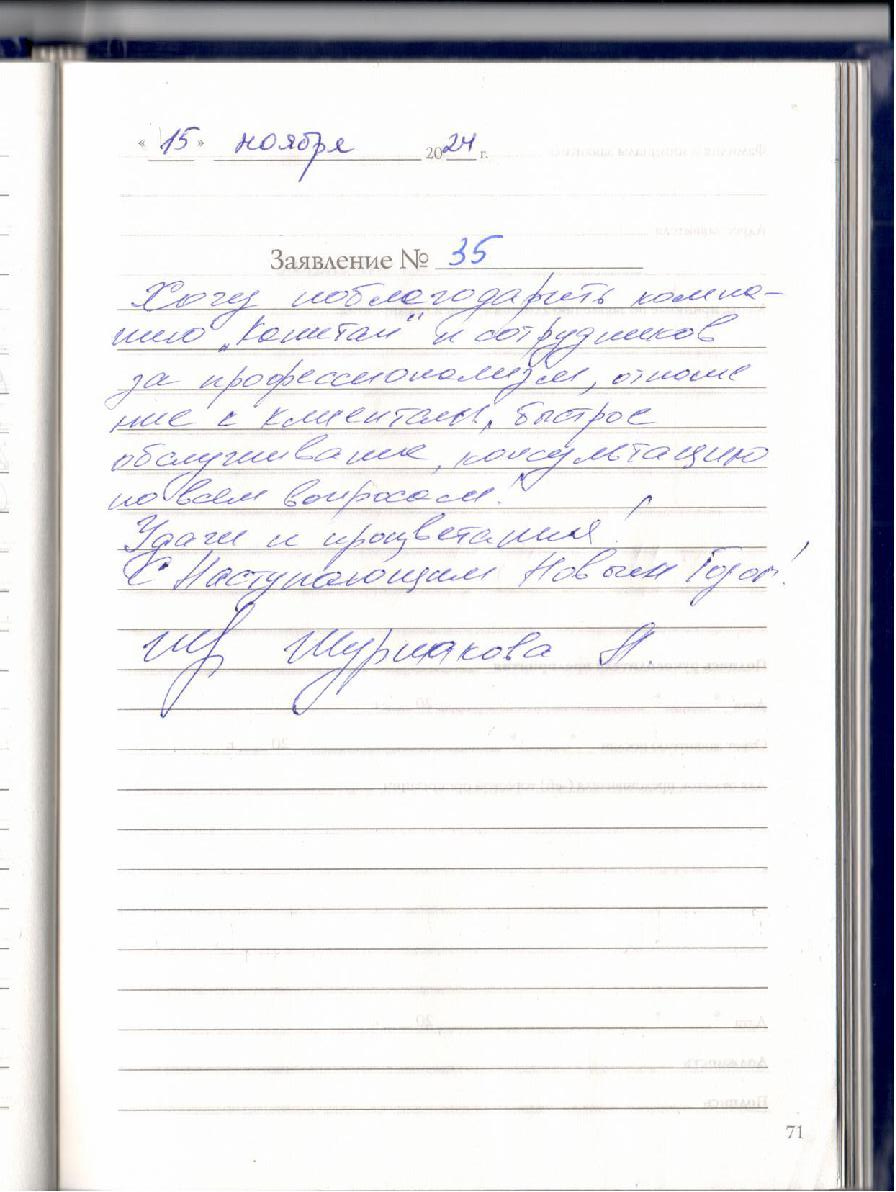 « 15 » ноября 2024 г.
Заявление № 35
Хочу поблагодарить компа-
нию „Капитал" и сотрудников
за профессионализм, отноше
ние к клиентам, быстрое
обслуживание, консультацию
по всем вопросам!
Удачи и процветания!
С Наступающим Новым Годом!
71